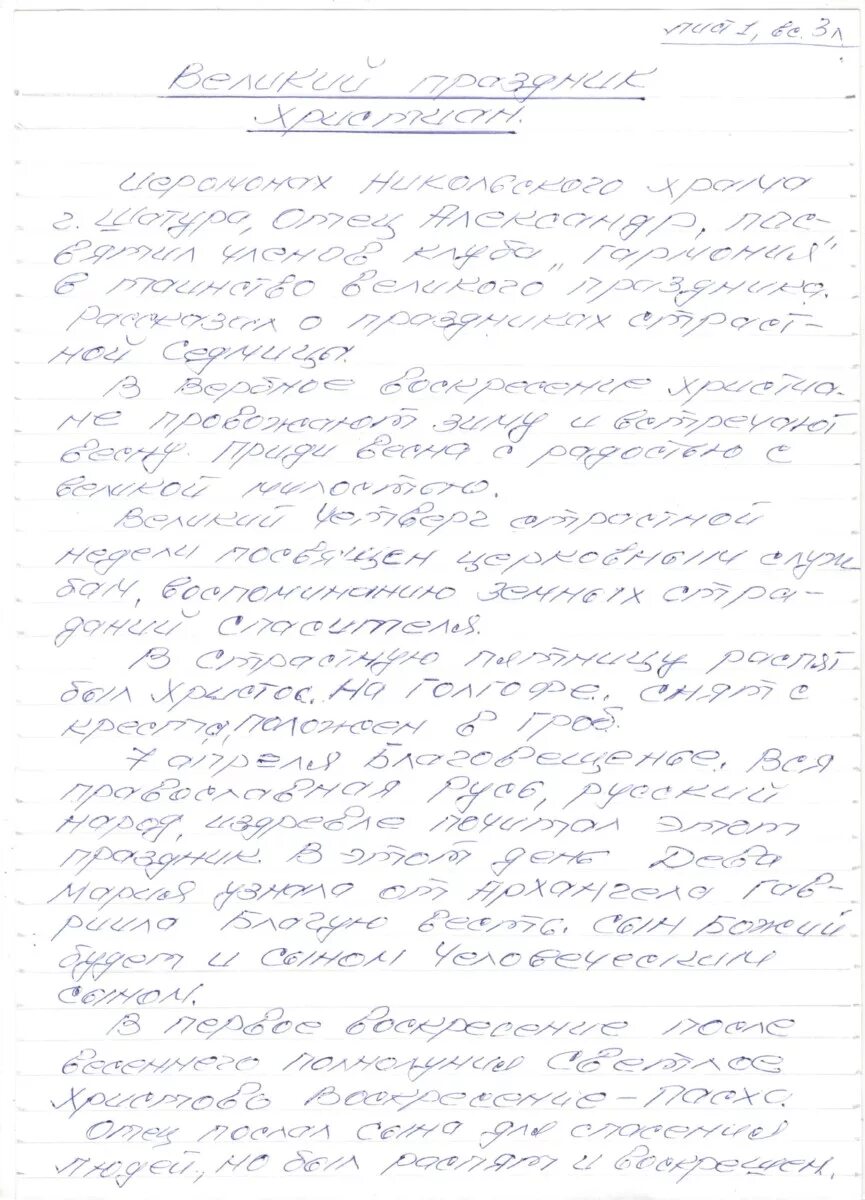 лист 1, вс. 3л
Великий праздник
Христиан.
иеромонах Никольского храма
г. Шатура, Отец Александр, пос-
вятил членов клуба „Гармония"
в таинство великого праздника.
Рассказал о праздниках страст-
ной Седмицы.
В Вербное воскресение христиа-
не провожают зиму и встречают
весну. Приди весна с радостью с
великой милостью.
Великий Четверг страстной
недели посвящен церковным служ
бам, воспоминанию земных стра-
даний спасителя.
В страстную пятницу распят
был Христос. На Голгофе, снят с
креста, положен в гроб.
7 апреля Благовещенье. Вся
православная Русь, русский
народ, издревле почитал этот
праздник. В этот день Дева
Мария узнала от Архангела Гав-
риила Благую весть. Сын Божий
будет и сыном Человеческим
сыном.
В первое воскресение после
весеннего полнолуния Светлое
Христово Воскресение – Пасха.
Отец послал сына для спасения
людей, но был распят и воскрешен.